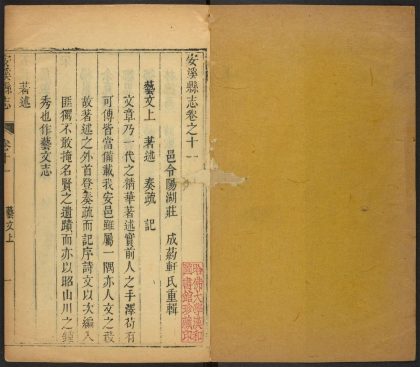 安溪縣志卷之十一
邑令陽湖莊 成葯軒氏重輯
藝文上 著述 奏疏 記
文章乃一代之精華著述實前人之手澤苟有
可傳皆當備載我安邑雖屬一隅亦人文之藪
故著述之外首登奏疏而記序詩文以次編入
匪獨不敢掩名賢之遺蹟而亦以昭山川之鍾
秀也作藝文志
著述
安溪縣志
卷十一
藝文上
一
哈佛大學漢和
圖書館珍藏印